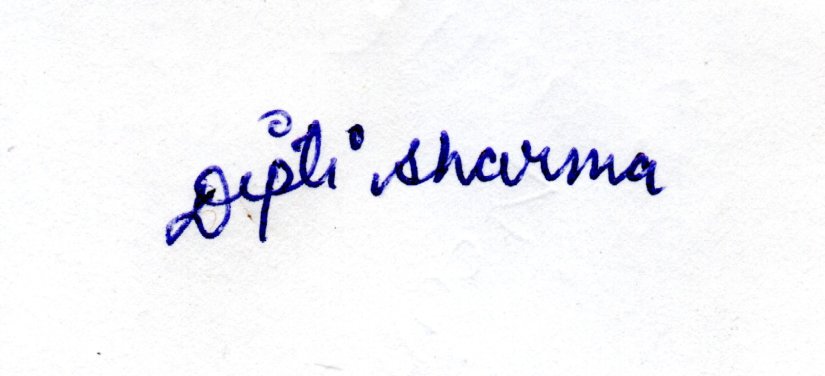 Dipti Sharma